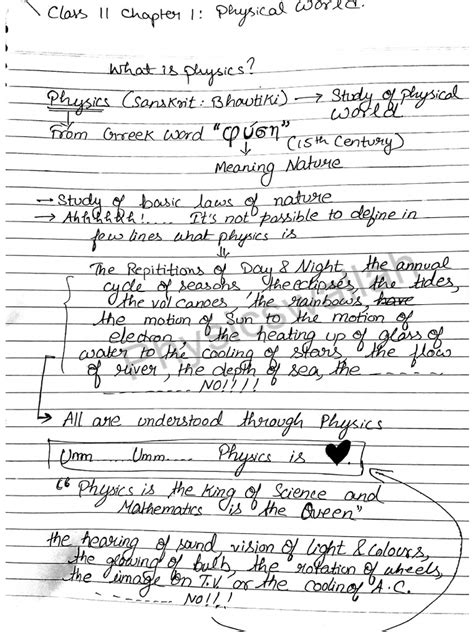 Class 11 Chapter 1: Physical World.
What is physics?
Physics (Sanskrit: Bhautiki) → Study of Physical
World
From Greek word "φύση" (15th Century)
Meaning Nature
→ Study of basic laws of nature
→ Ahhhhhh!..... It's not possible to define in
few lines what physics is
The Repititions of Day & Night, the annual
cycle of seasons, the eclipses, the tides,
the volcanoes, the rainbows, have
the motion of Sun to the motion of
electron, the heating up of glass of
water to the cooling of stars, the flow
of river, the depth of sea, the
NO!!!!
→ All are understood through Physics
Umm.... Umm..... Physics is ♥.
"Physics is the King of Science and
Mathematics is the Queen"
the hearing of sound, vision of light & colours,
the glowing of bulb, the rotation of wheels,
the image on T.V or the cooling of A.C.
NO!!!
Physicswallah